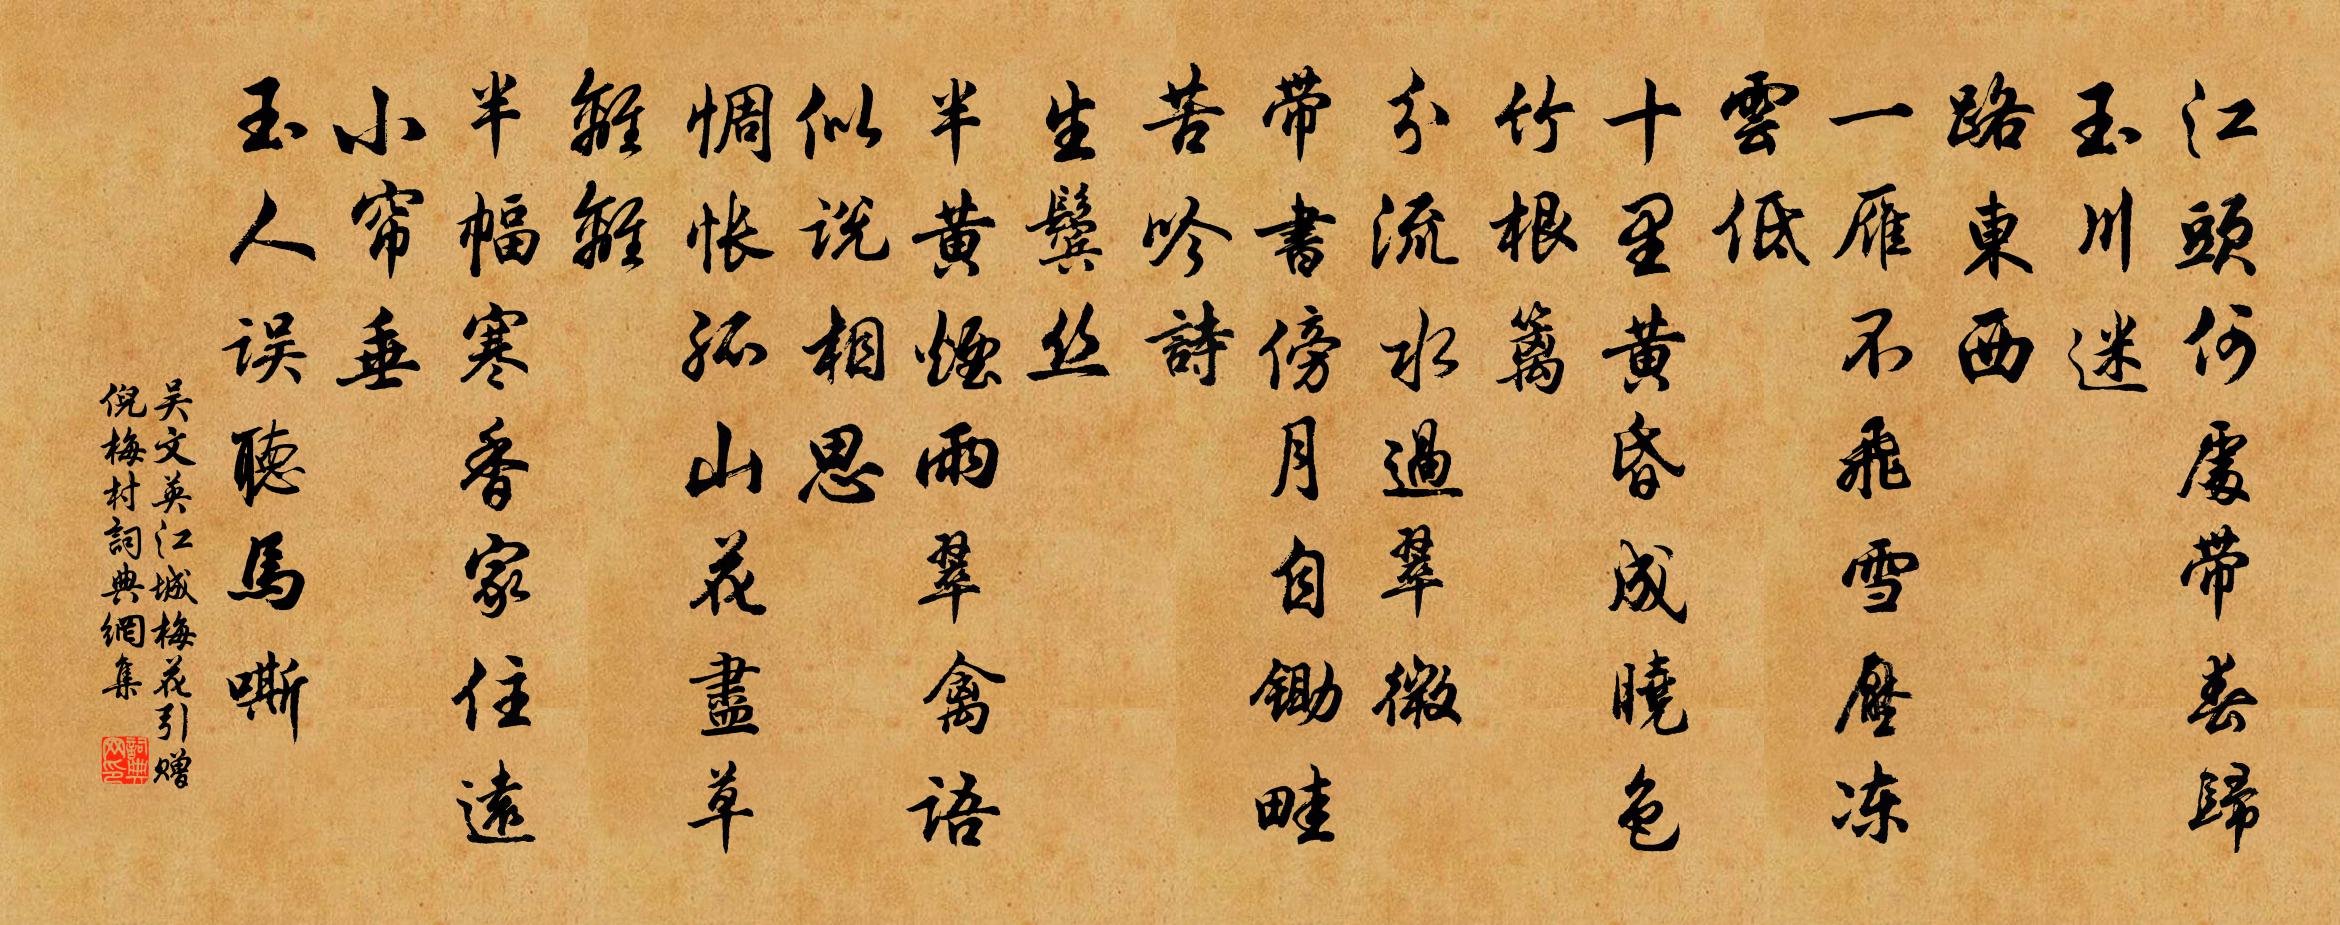 江頭何處帶春歸
玉川迷
路東西
一雁不飛雪壓凍
雲低
十里黄昏成曉色
竹根籬
分流水過翠微
帶書傍月自鋤畦
苦吟詩
生鬢絲
半黄煙雨翠禽語
似說相思
惆悵孤山花盡草
離離
半幅寒香家住遠
小帘垂
玉人誤聽馬嘶
吴文英江城梅花引赠
倪梅村詞典網集
詞典网印